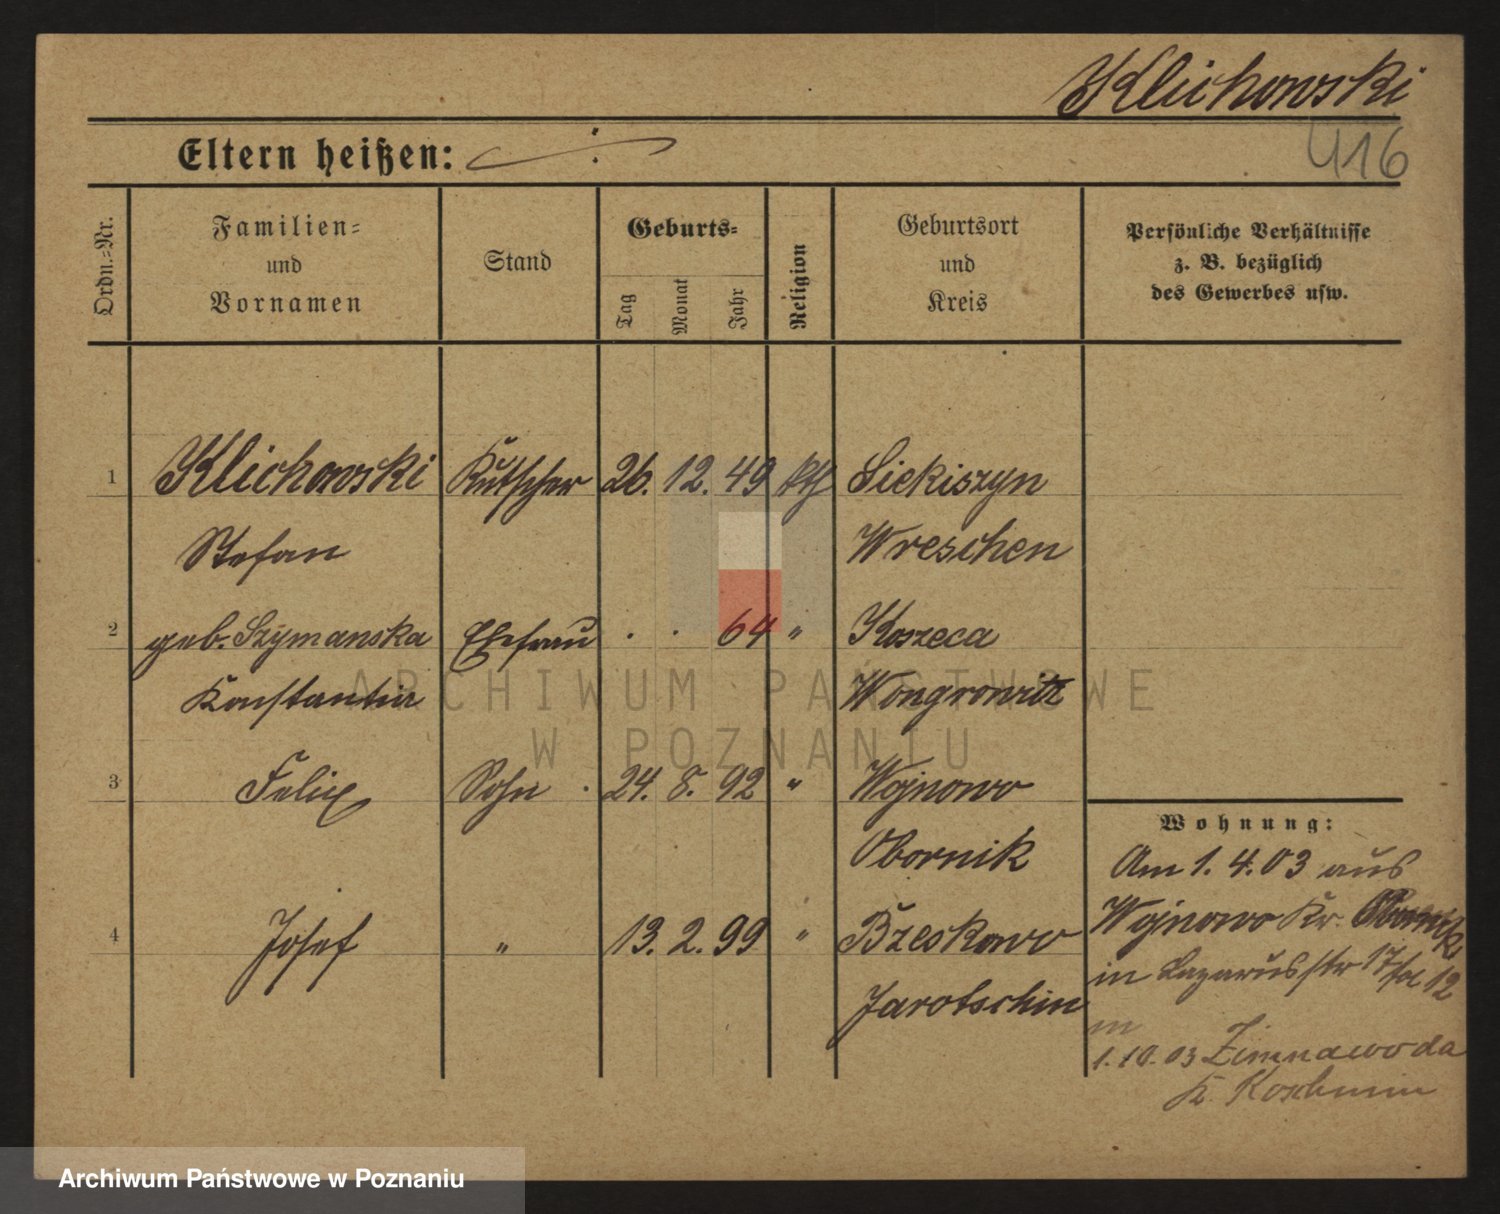 Klichowski
416
Eltern heißen:
Ordn.-Nr.
Familien-
und
Vornamen
Stand
Geburts-
Tag
Monat
Jahr
Religion
Geburtsort
und
Kreis
Persönliche Verhältnisse
z. B. bezüglich
des Gewerbes usw.
1 Klichowski Kutscher 26. 12. 49 kth Siekiszyn
Stefan Wreschen
2 geb. Szymanska Ehefrau . . 64 " Koszeca
Konstantin Wongrowitz
3 Felix Sohn . 24. 8. 92 " Wojnowo
Obornik
4 Josef " 13. 2. 99 " Bzeskowo
Jarotschin
Wohnung:
Am 1. 4. 03 aus
Wojnowo Kr. Obornik
in Lazarusstr 17 12
in
1.10.03 Zimnawoda
K. Koschmin
ARCHIWUM PAŃSTWOWE
W POZNANIU
Archiwum Państwowe w Poznaniu